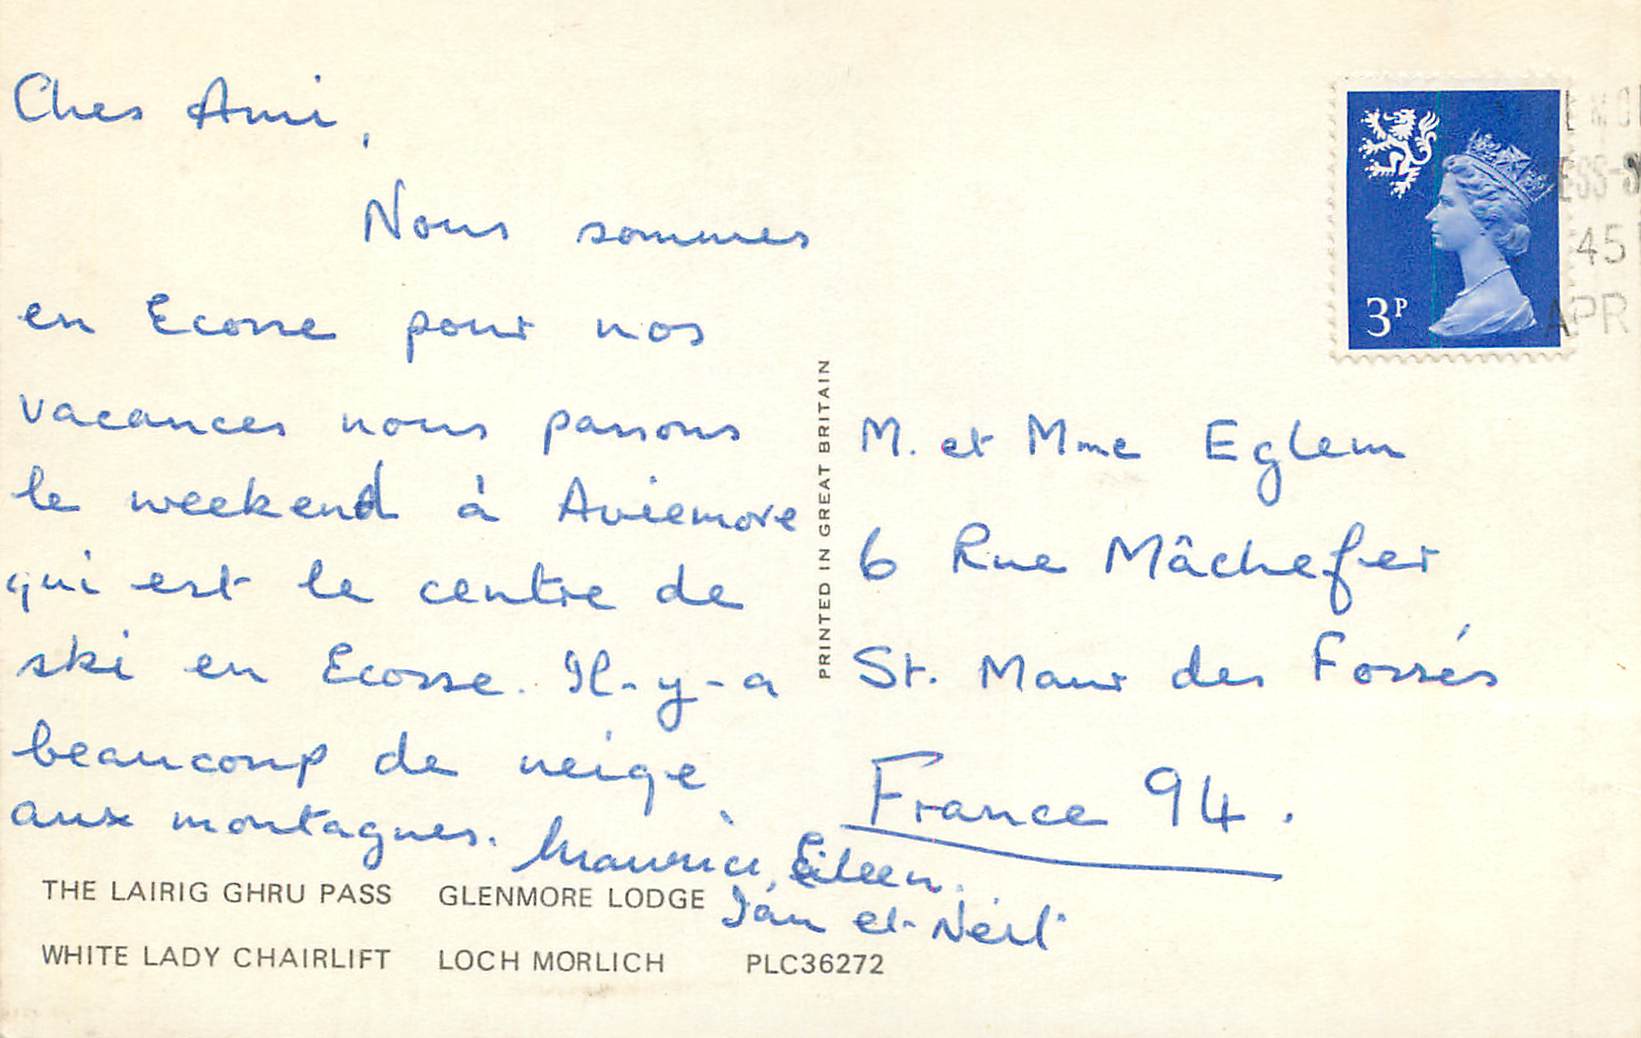 Ches Ami,
Nous sommes
en Ecosse pour nos
vacances nous passons
le weekend à Aviemore
qui est le centre de
ski en Ecosse. Il-y-a
beaucoup de neige
aux montagnes. Maurice, Eileen.
Ian et Neil
THE LAIRIG GHRU PASS GLENMORE LODGE
WHITE LADY CHAIRLIFT LOCH MORLICH PLC36272
PRINTED IN GREAT BRITAIN
3P
45
APR
M. et Mme Eglem
6 Rue Mâchefer
St. Maur des Fossés
France 94.